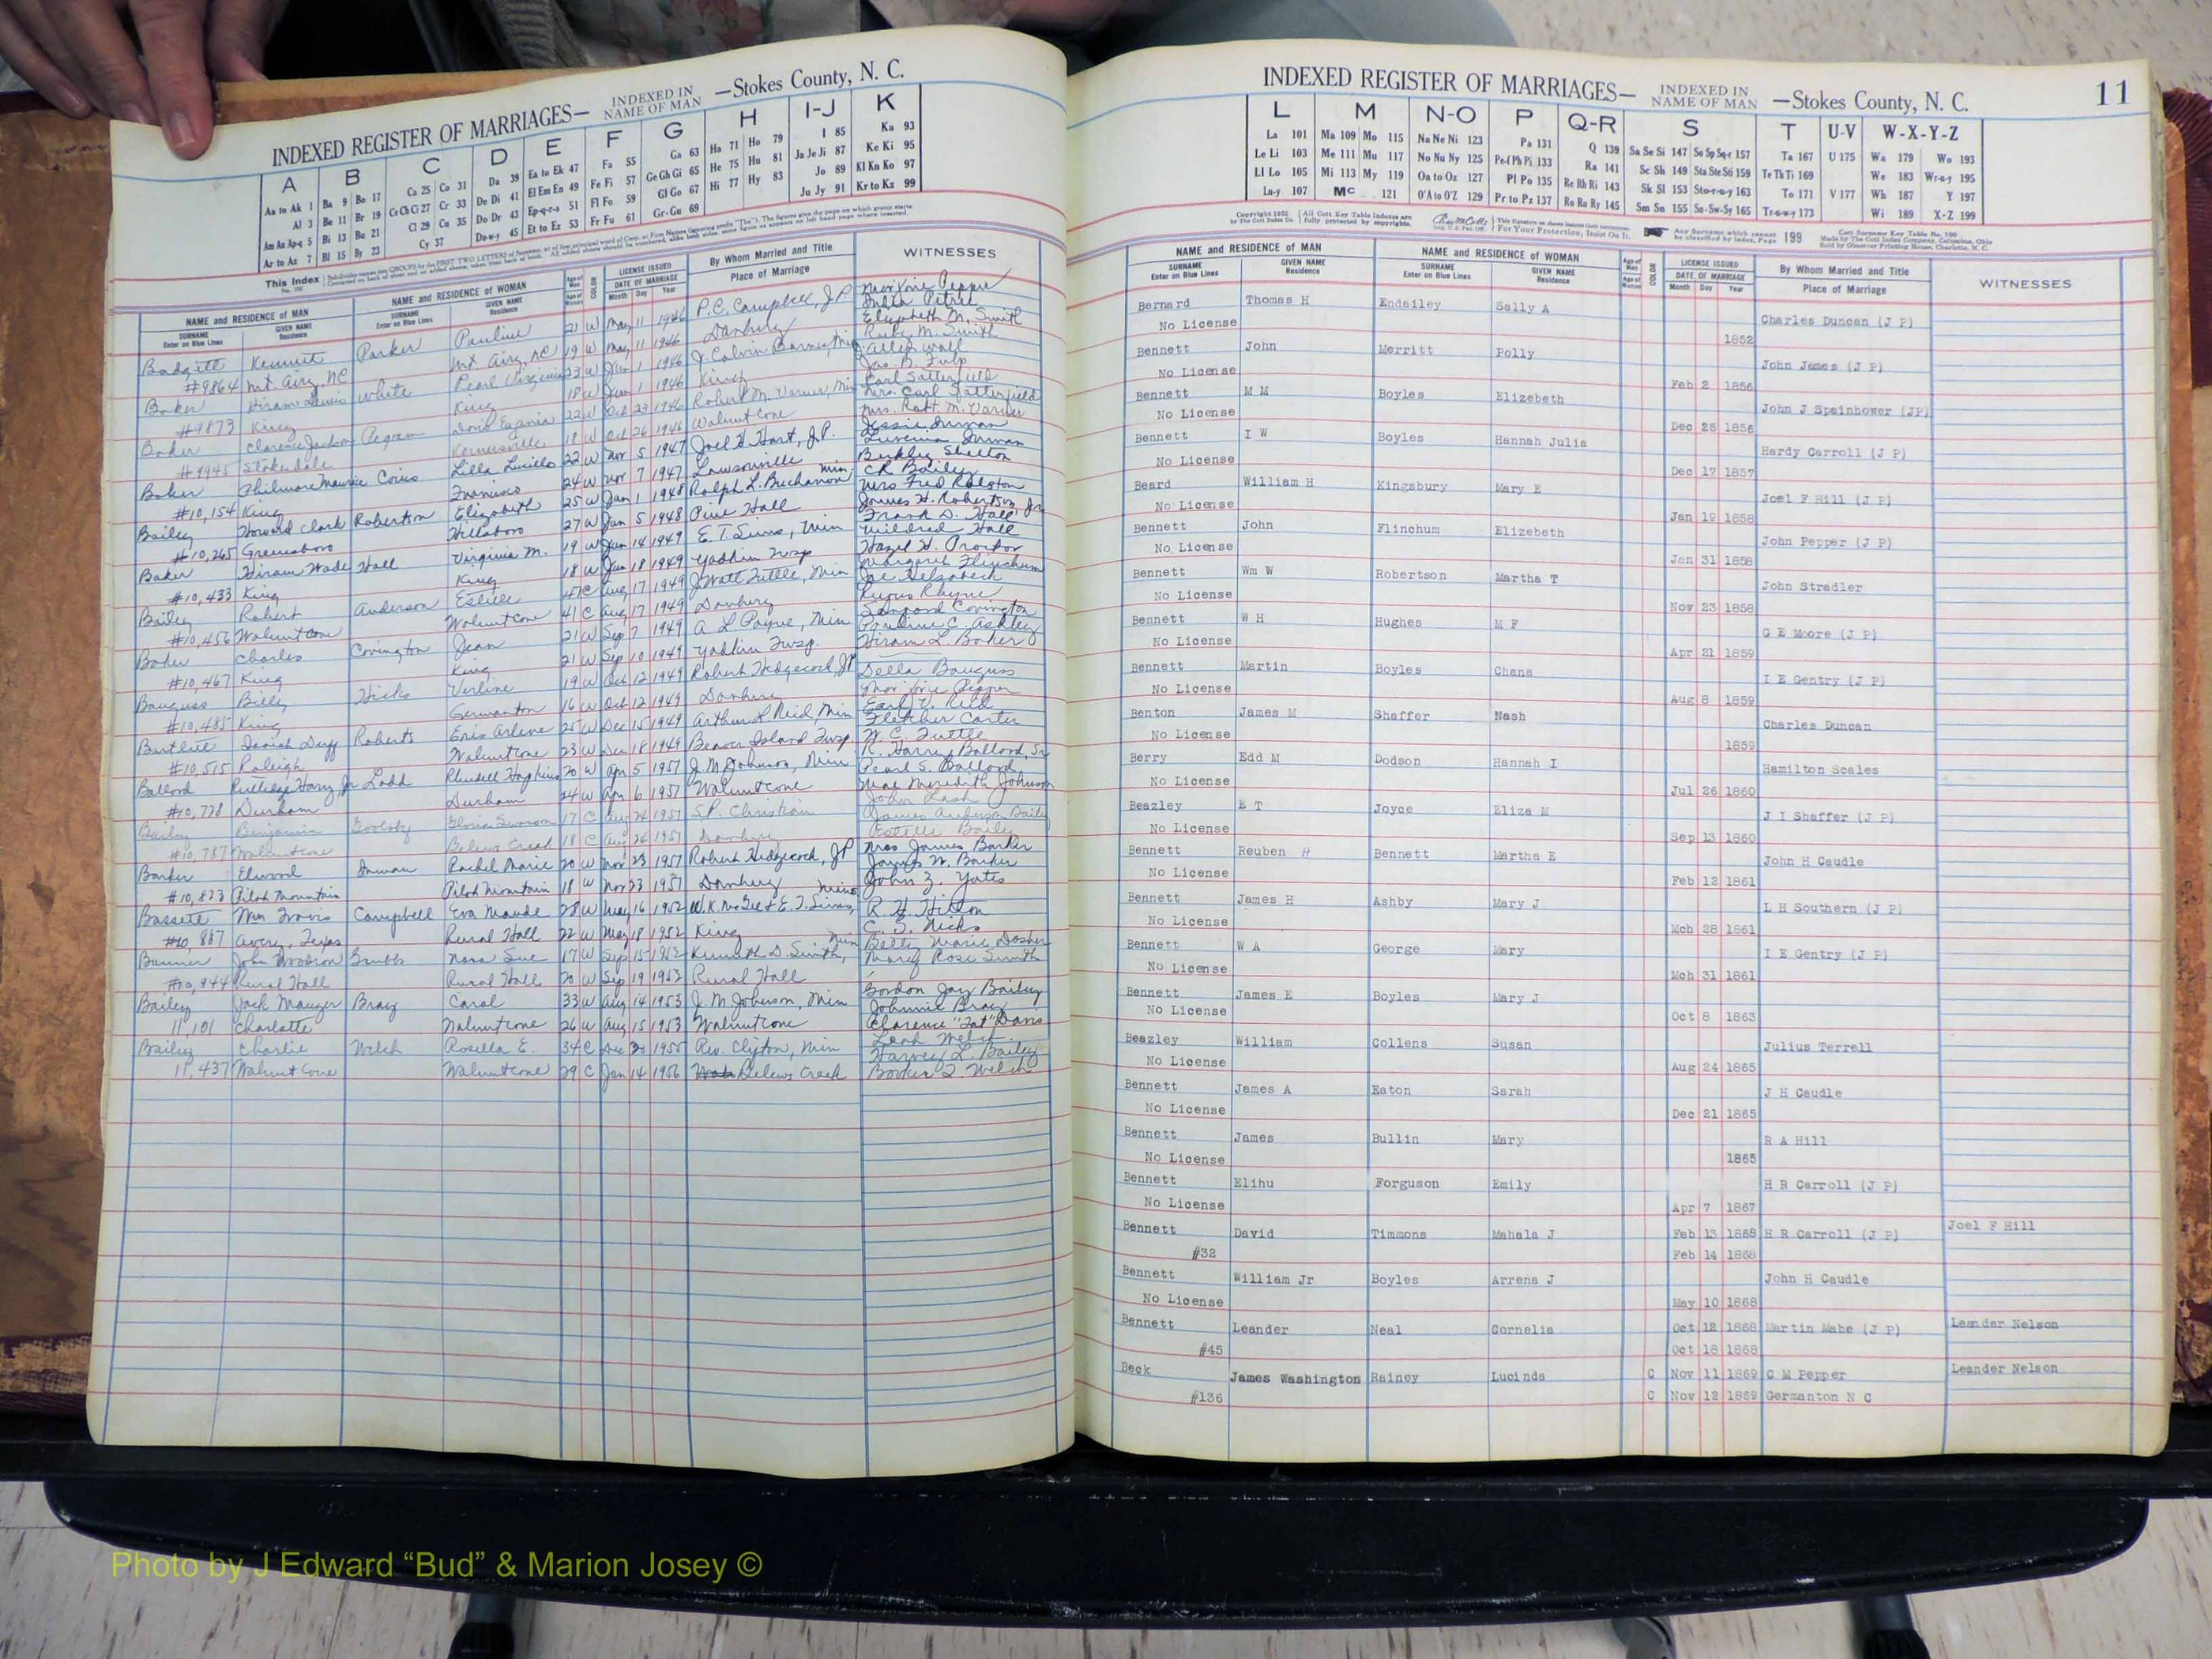 INDEXED REGISTER OF MARRIAGES— INDEXED IN NAME OF MAN —Stokes County, N. C.
A B C D E F G H I-J K
Aa to Ak 1 Ba 9 Bo 17 Ca 25 Co 31 Da 39 Ea to Ek 47 Fa 55 Ga 63 Ha 71 Ho 79 I 85 Ka 93
Al 3 Be 11 Br 19 Ce Ch Ci 27 Cr 33 De Di 41 El Em En 49 Fe Fi 57 Ge Gh Gi 65 He 75 Hu 81 Ja Je Ji 87 Ke Ki 95
Am An Ap-q 5 Bi 13 Bu 21 Cl 29 Cu 35 Do Dr 43 Ep-q-r-s 51 Fl Fo 59 Gl Go 67 Hi 77 Hy 83 Jo 89 Kl Kn Ko 97
Ar to Az 7 Bl 15 By 23 Cy 37 Du-w-y 45 Et to Ez 53 Fr Fu 61 Gr-Gu 69 Ju Jy 91 Kr to Kz 99
This Index
NAME and RESIDENCE OF MAN NAME and RESIDENCE OF WOMAN COLOR LICENSE ISSUED By Whom Married and Title WITNESSES
SURNAME Enter on Blue Lines GIVEN NAME Residence SURNAME Enter on Blue Lines GIVEN NAME Residence DATE OF MARRIAGE Month Day Year Place of Marriage
Badgett Kennett Parker Pauline 21 W May 11 1946 P.C. Campbell, J.P. Marjorie Pepper
#9864 Mt. Airy, NC Mt. Airy, NC 19 W May 11 1946 Danbury
Baker Hiram Lewis White Pearl Virginia 23 W Jun 1 1946 J. Calvin Barnes, Min Elizabeth M. Smith
#9873 King King 18 W Jun 1 1946 King Ruby M. Smith
Baker Clarence Jackson Pegram Doris Eugenia 22 W Oct 23 1946 Robert M. Varner, Min Carl Satterfield
#9945 Stokesdale Kernersville 18 W Oct 26 1946 Walnut Cove Mrs. Carl Satterfield
Mrs. Robt. M. Varner
Baker Philmore Maurice Lilla Lucille 22 W Nov 5 1947 Joel H. Hart, J.P.
#10,154 King Francisco 24 W Nov 7 1947 Lawsonville
Bailey Howard Clark Robertson Elizabeth 25 W Jan 1 1948 Ralph L. Buchanan Min. CR Bailey
#10,265 Greensboro Hillsboro 27 W Jan 5 1948 Pine Hall James H. Robertson, Jr
Baker Hiram Wade Hall Virginia M. 19 W Jun 14 1949 E. T. Sims, Min Frank D. Hall
#10,433 King King 18 W Jun 18 1949 Yadkin Twsp Mildred Hall
Bailey Robert Anderson Estelle 47 C Aug 17 1949 J Watt Tuttle, Min Margaret Flinchum
#10,456 Walnut Cove Walnut Cove 41 C Aug 17 1949 Danbury
Baker Charles Covington Jean 21 W Sep 7 1949 A. L. Payne, Min Sanford Covington
#10,467 King King 21 W Sep 10 1949 Yadkin Twsp. Pauline C. Ashley
Hiram L. Baker
Bauguss Billy Hicks Verline 19 W Oct 12 1949 Robert Hedgecock, JP Della Bauguss
#10,485 King Germanton 16 W Oct 12 1949 Danbury Marjorie Pepper
Roberts Eris Arlene 25 W Dec 15 1949 Arthur L Reid, Min Earl V. Reid
#10,515 Raleigh Walnut Cove 23 W Dec 18 1949 Beaver Island Twsp. Fletcher Carter
W. C. Tuttle
Ballard Rutledge Harry, Jr Ladd 20 W Apr 5 1951 J. M. Johnson, Min R. Harry Ballard, Sr
#10,728 Durham Durham 24 W Apr 6 1951 Walnut Cove Pearl S. Ballard
Bailey Benjamin 17 C Aug 24 1951 S.P. Christian John Lash
#10,787 Walnut Cove Belews Creek 18 C Aug 26 1951 Danbury Estelle Bailey
Barker Elwood Inman Rachel Marie 20 W Nov 23 1951 Robert Hedgecock, JP Mrs James Barker
#10,823 Pilot Mountain Pilot Mountain 18 W Nov 23 1951 Danbury James W. Barker
Bassett Wm Travis Campbell Eva Maude 28 W May 16 1952 W.K. McGee & E. T. Sims, Mins John Z. Yates
#10,887 Avery, Texas Rural Hall 22 W May 18 1952 King
Banner John Woodrow Grubbs Nora Sue 17 W Sep 15 1952 Kenneth D. Smith, Min Betty Marie Dosher
#10,944 Rural Hall Rural Hall 20 W Sep 19 1952 Rural Hall Mary Rose Smith
Bailey Jack Mauzer Bray Carol 33 W Aug 14 1953 J. M. Johnson, Min Gordon Jay Bailey
11,101 Charlotte Walnut Cove 26 W Aug 15 1953 Walnut Cove Johnnie Bray
Clarence "Tat" Davis
Bailey Charlie Welch Rosella E. 34 C Dec 30 1955 Rev. Clyton, Min Leah Welch
11,437 Walnut Cove Walnut Cove 29 C Jan 14 1956 Belews Creek Harvey L. Bailey
INDEXED REGISTER OF MARRIAGES— INDEXED IN NAME OF MAN —Stokes County, N. C. 11
L M N-O P Q-R S T U-V W-X-Y-Z
La 101 Ma 109 Mo 115 Na Ne Ni 123 Pa 131 Q 139 Sa Se Si 147 So Sp Sq-r 157 Ta 167 U 175 Wa 179 Wo 193
Le Li 103 Me 111 Mu 117 No Nu Ny 125 Pe-f Ph Pi 133 Ra 141 Sc Sh 149 Sta Ste Sti 159 Te Th Ti 169 We 183 Wr-u-y 195
Ll Lo 105 Mi 113 My 119 Oa to Oz 127 Pl Po 135 Re Rh Ri 143 Sk Sl 153 Sto-r-u-y 163 To 171 V 177 Wh 187 Y 197
Lu-y 107 Mc 121 O'A to O'Z 129 Pr to Pz 137 Ro Ru Ry 145 Sm Sn 155 Su-Sw-Sy 165 Tr-u-w-y 173 Wi 189 X-Z 199
NAME and RESIDENCE OF MAN NAME and RESIDENCE OF WOMAN COLOR LICENSE ISSUED By Whom Married and Title WITNESSES
SURNAME Enter on Blue Lines GIVEN NAME Residence SURNAME Enter on Blue Lines GIVEN NAME Residence DATE OF MARRIAGE Month Day Year Place of Marriage
Bernard Thomas H Endailey Sally A
No License 1852 Charles Duncan (J P)
Bennett John Merritt Polly
No License Feb 2 1856 John James (J P)
Bennett M M Boyles Elizebeth
No License Dec 25 1856 John J Spainhower (JP)
Bennett I W Boyles Hannah Julia
No License Dec 17 1857 Hardy Carroll (J P)
Beard William H Kingsbury Mary E
No License Jan 19 1858 Joel F Hill (J P)
Bennett John Flinchum Elizebeth
No License Jan 31 1858 John Pepper (J P)
Bennett Wm W Robertson Martha T
No License Nov 23 1858 John Stradler
Bennett W H Hughes M F
No License Apr 21 1859 G E Moore (J P)
Bennett Martin Boyles Chana
No License Aug 8 1859 I E Gentry (J P)
Benton James M Shaffer Nash
No License 1859 Charles Duncan
Berry Edd M Dodson Hannah I
No License Jul 26 1860 Hamilton Scales
Beazley E T Joyce Eliza M
No License Sep 13 1860 J I Shaffer (J P)
Bennett Reuben H Bennett Martha E
No License Feb 12 1861 John H Caudle
Bennett James H Ashby Mary J
No License Mch 28 1861 L H Southern (J P)
Bennett W A George Mary
No License Mch 31 1861 I E Gentry (J P)
Bennett James E Boyles Mary J
No License Oct 8 1863
Beazley William Collens Susan
No License Aug 24 1865 Julius Terrell
Bennett James A Eaton Sarah
No License Dec 21 1865 J H Caudle
Bennett James Bullin Mary
No License 1865 R A Hill
Bennett Elihu Forguson Emily
No License Apr 7 1867 H R Carroll (J P)
Bennett David Timmons Mahala J Feb 13 1868 H R Carroll (J P) Joel F Hill
#32 Feb 14 1868
Bennett William Jr Boyles Arrena J
No License May 10 1868 John H Caudle
Bennett Leander Neal Cornelia Oct 12 1868 Martin Mabe (J P) Leander Nelson
#45 Oct 18 1868
Beck James Washington Rainey Lucinda C Nov 11 1869 C M Pepper Leander Nelson
#136 C Nov 12 1869 Germanton N C
Photo by J Edward “Bud” & Marion Josey ©